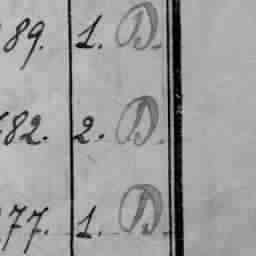 89. 1. D.
82. 2. D.
77. 1. D.